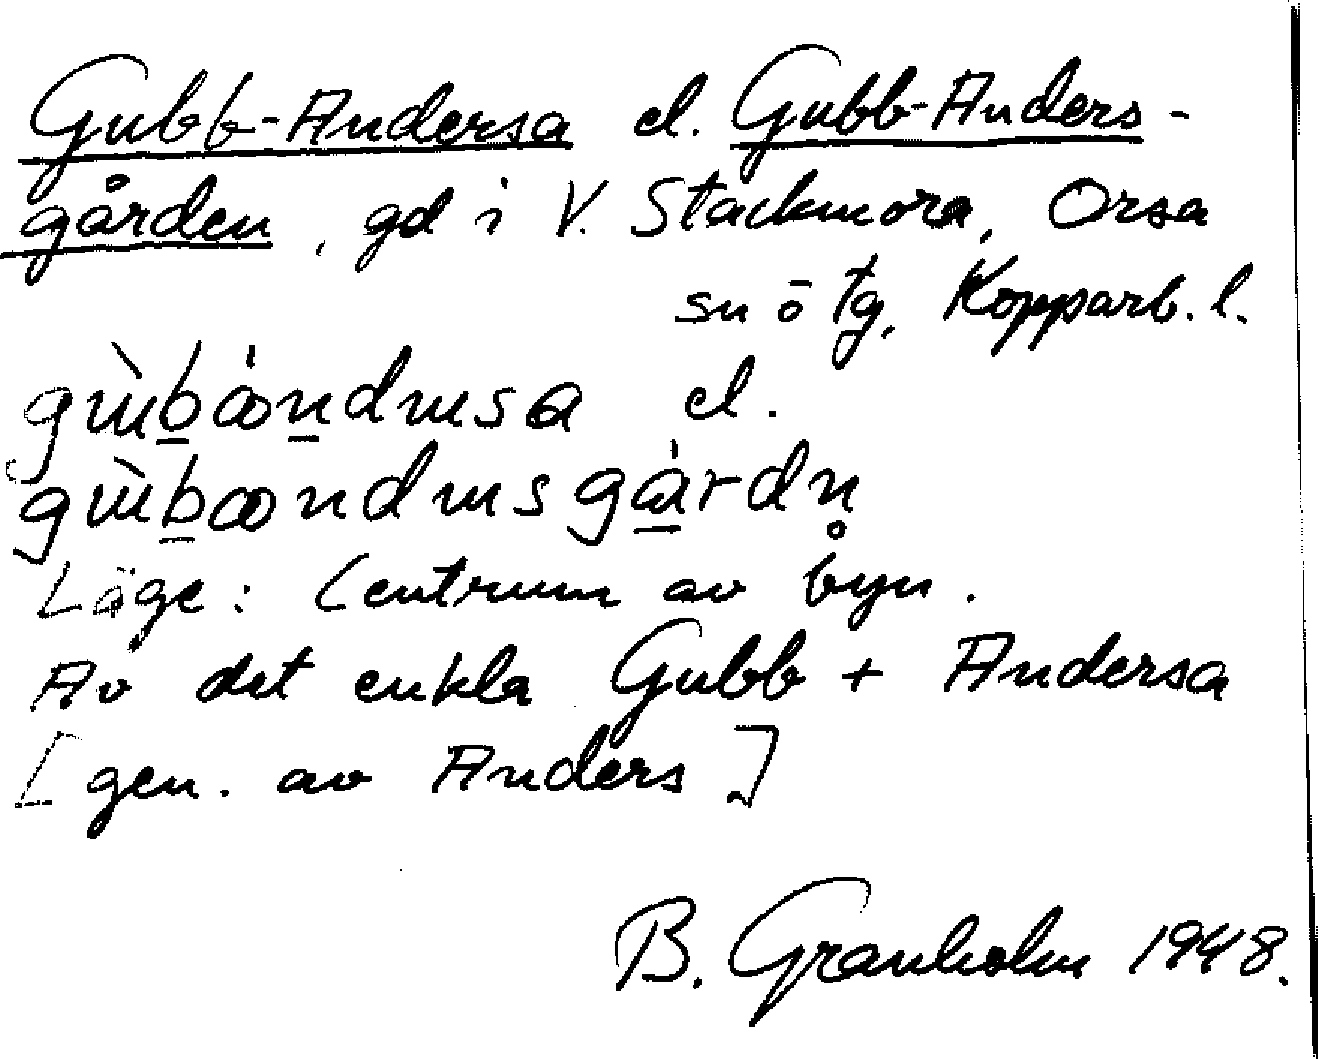 Gubb-Andersa el. Gubb-Anders-
gården, gd i V. Stackmora, Orsa
sn o tg, Kopparb. l.
el.
Läge: Centrum av byn.
Av det enkla Gubb + Andersa
[gen. av Anders]
B. Granholm 1948.